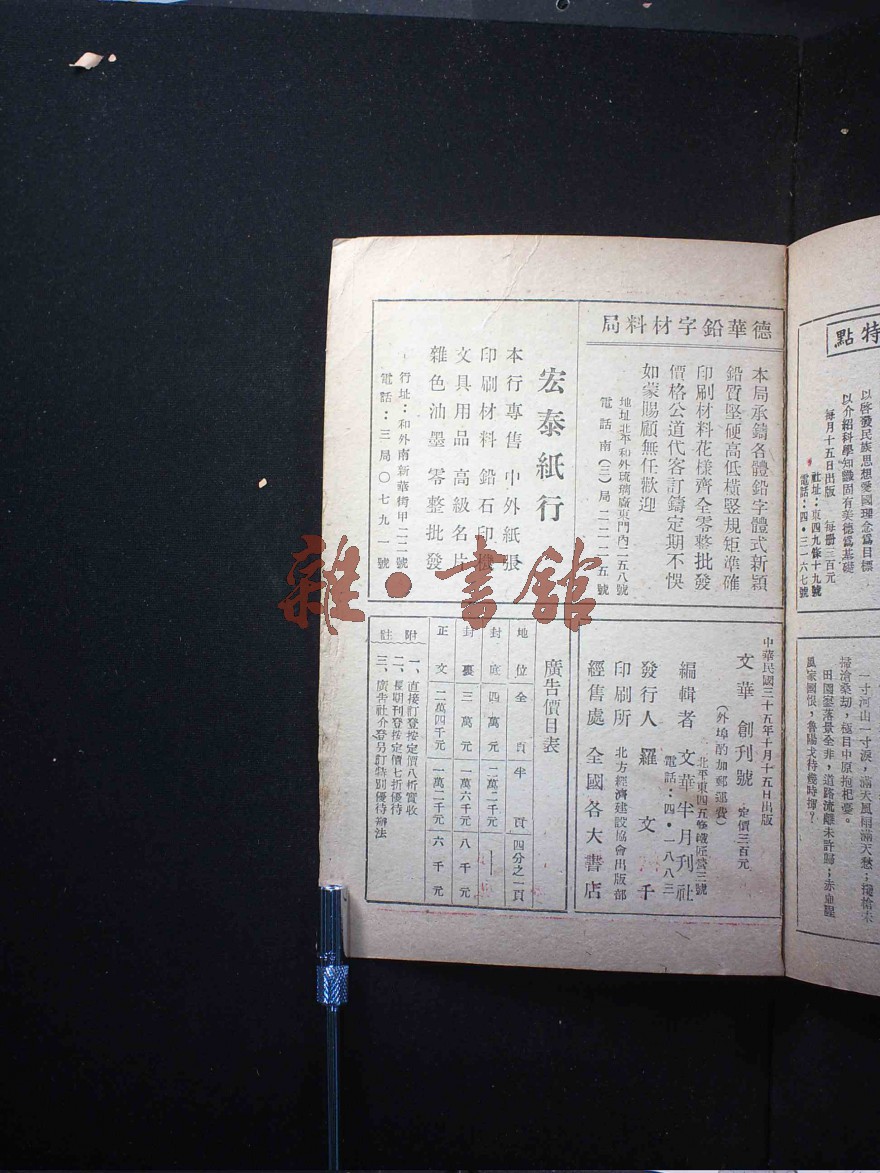 特點
以啓發民族思想愛國理念爲目標
以介紹科學知識固有美德爲基礎
每月十五日出版 每册三百元
社址：東四九條十九號
電話：四·三一六七號
一寸河山一寸淚，滿天風雨滿天愁；攙槍未
掃滄桑劫，極目中原抱杞憂。
田園寥落景全非，道路流離未許歸；赤血腥
風家國恨，魯陽戈待幾時揮？
德華鉛字材料局
本局承鑄各體鉛字體式新穎
鉛質堅硬高低橫竪規矩準確
印刷材料花樣齊全零整批發
價格公道代客訂鑄定期不悞
如蒙賜顧無任歡迎
地址北平和外琉璃廠東門內二五八號
電話南（三）局二二一二五號
宏泰紙行
本行專售 中外紙張
印刷材料 鉛石印機
文具用品 高級名片
雜色油墨 零整批發
行址：和外南新華街甲二二號
電話：三局〇七九一號
中華民國三十五年十月十五日出版
文華 創刊號 定價三百元
（外埠酌加郵運費）
北平東四五條鐵匠營三號
編輯者 文華半月刊社
電話：四·一八八三
發行人 羅文千
印刷所 北方經濟建設協會出版部
經售處 全國各大書店
廣告價目表
地位 全頁 半頁 四分之一頁
封底 四萬元 二萬二千元 ——
封裏 三萬元 一萬六千元 八千元
正文 二萬四千元 一萬二千元 六千元
附註
一、直接訂登按定價八折實收
二、長期刊登按定價七折優待
三、廣告社介登另訂特別優待辦法
雜·書館